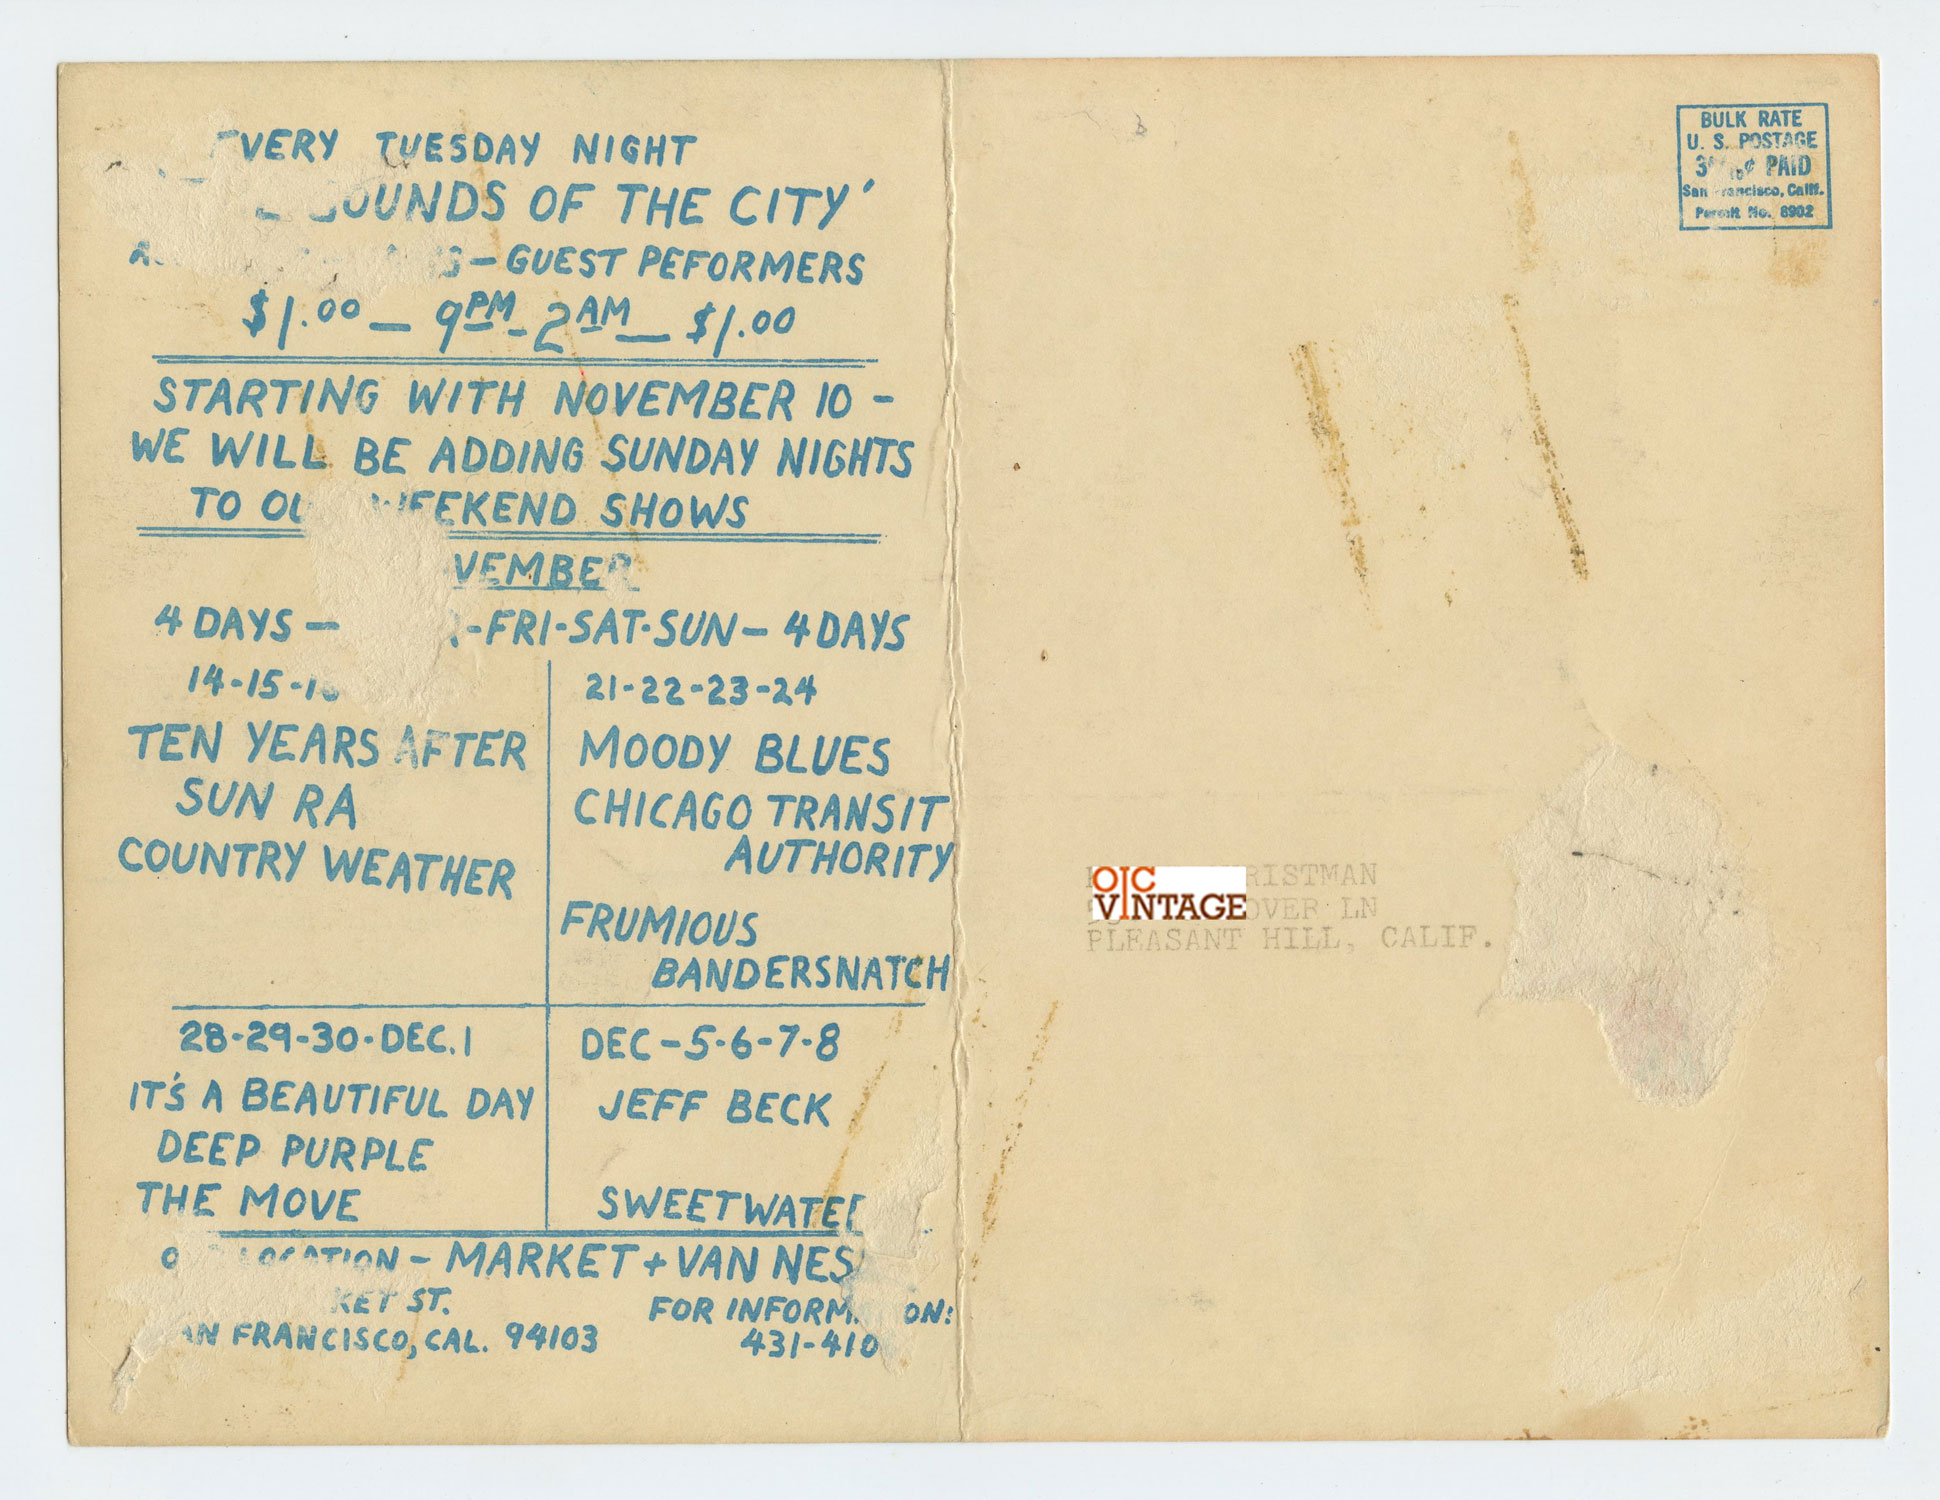 TUESDAY NIGHT
OF THE CITY'
- GUEST PEFORMERS
$1.00 — 9PM - 2AM — $1.00
STARTING WITH NOVEMBER 10 -
WE WILL BE ADDING SUNDAY NIGHTS
TO WEEKEND SHOWS
4 DAYS — -FRI-SAT-SUN — 4 DAYS
14-15-
TEN YEARS AFTER
SUN RA
COUNTRY WEATHER
21-22-23-24
MOODY BLUES
CHICAGO TRANSIT
AUTHORITY
FRUMIOUS
BANDERSNATCH
28-29-30-DEC. 1
IT'S A BEAUTIFUL DAY
DEEP PURPLE
THE MOVE
DEC-5-6-7-8
JEFF BECK
SWEETWATER
LOCATION - MARKET + VAN NESS
ST.
SAN FRANCISCO, CAL. 94103
FOR INFORMATION:
431-410
BULK RATE
U. S. POSTAGE
PAID
San Francisco, Calif.
Permit No. 8902
OC
VINTAGE
RISTMAN
OVER LN
PLEASANT HILL, CALIF.